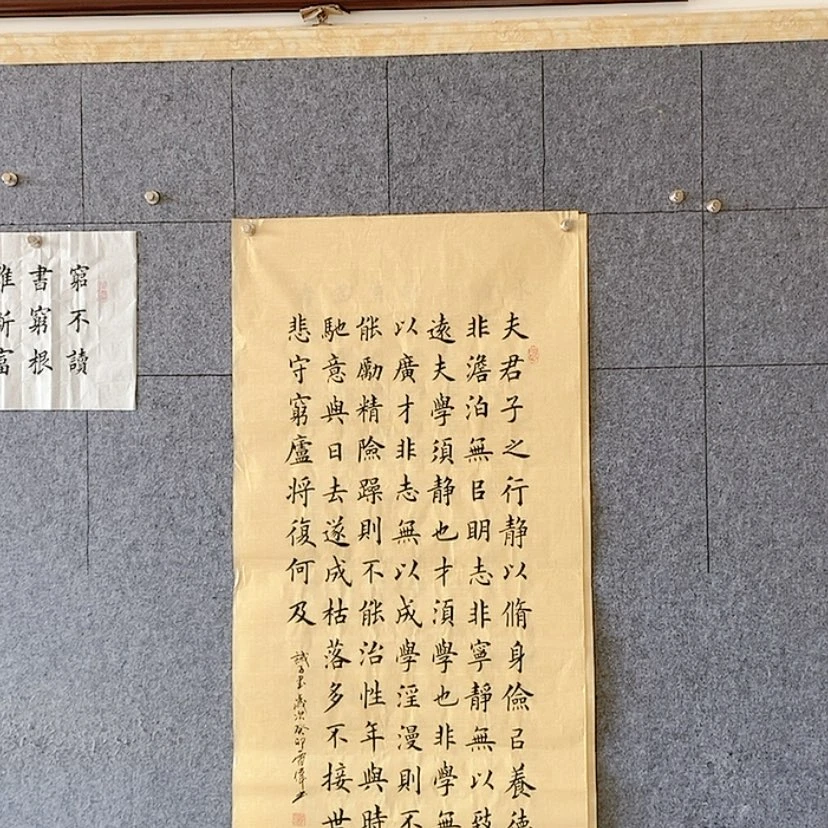 夫君子之行静以脩身儉㠯養德
非澹泊無㠯明志非寧靜無以致
遠夫學須静也才須學也非學無
以廣才非志無以成學淫漫則不
能勵精險躁則不能治性年與時
馳意與日去遂成枯落多不接世
悲守窮廬将復何及
誡子書歲次癸卯
窮不讀
書窮根
唯所富